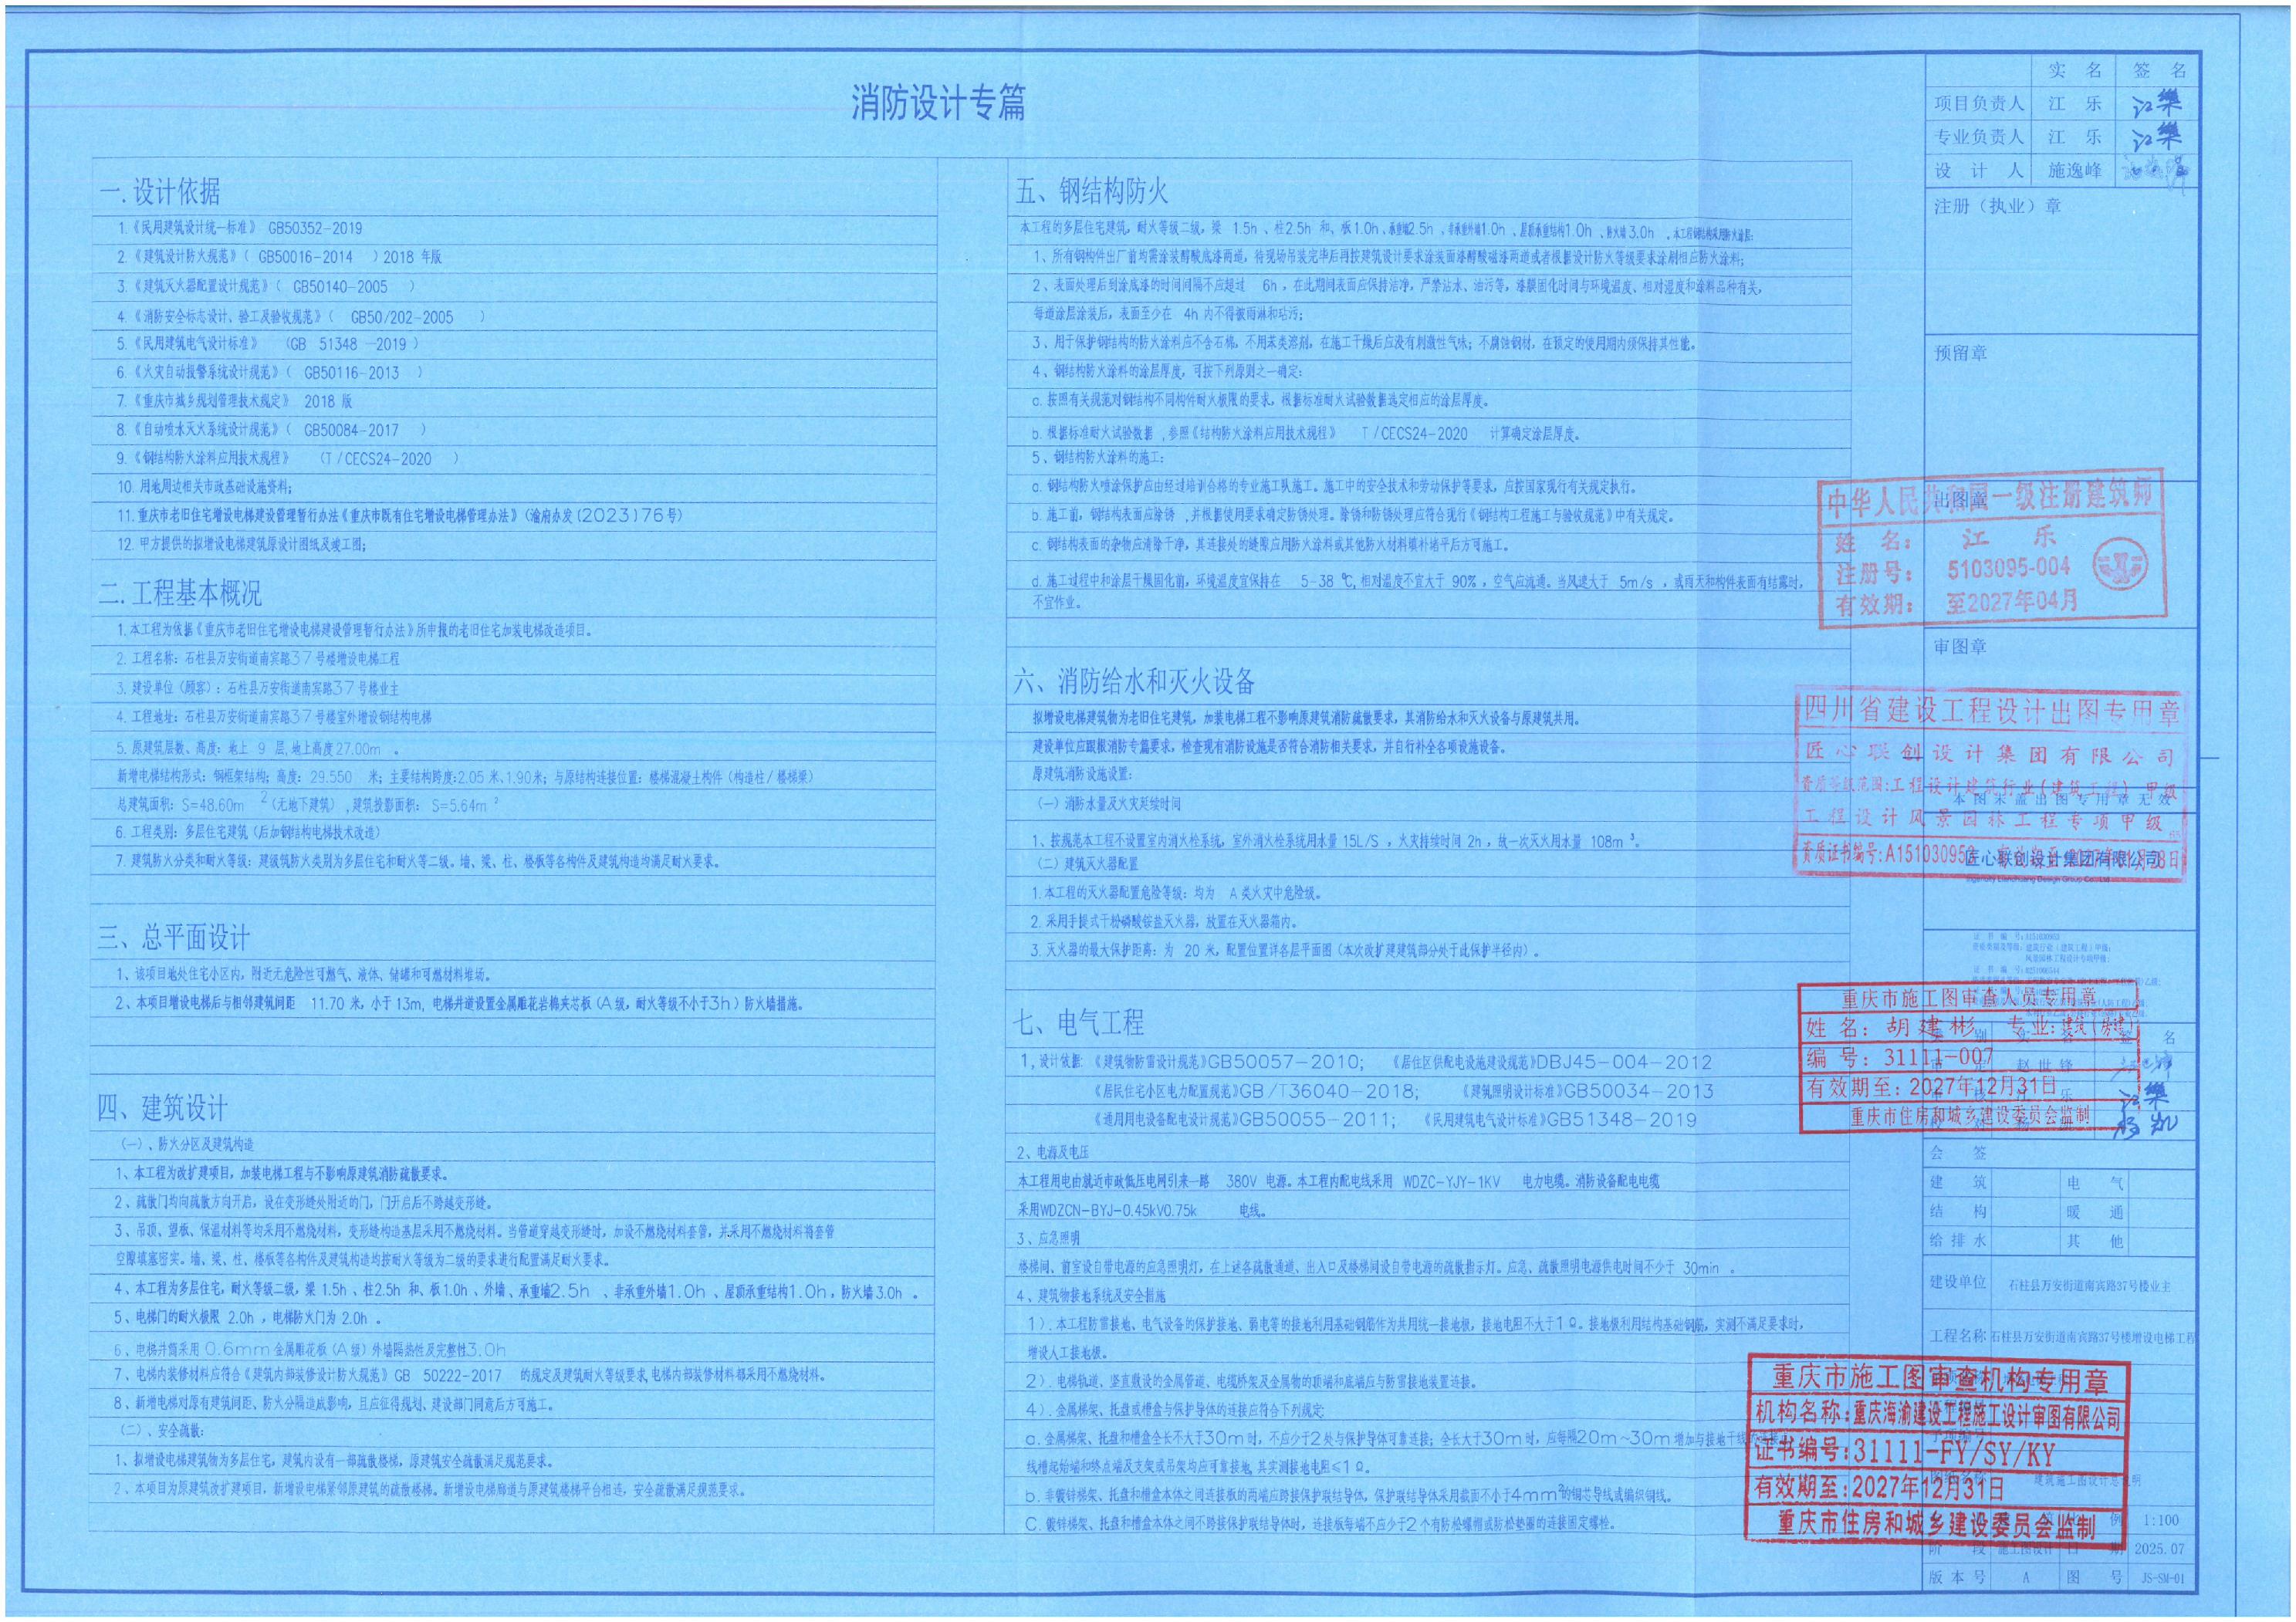 消防设计专篇
一.设计依据
1.《民用建筑设计统一标准》 GB50352-2019
2.《建筑设计防火规范》( GB50016-2014 )2018 年版
3.《建筑灭火器配置设计规范》( GB50140-2005 )
4.《消防安全标志设计、验工及验收规范》( GB50/202-2005 )
5.《民用建筑电气设计标准》 (GB 51348 -2019 )
6.《火灾自动报警系统设计规范》( GB50116-2013 )
7.《重庆市城乡规划管理技术规定》 2018 版
8.《自动喷水灭火系统设计规范》( GB50084-2017 )
9.《钢结构防火涂料应用技术规程》 (T/CECS24-2020 )
10. 用地周边相关市政基础设施资料;
11. 重庆市老旧住宅增设电梯建设管理暂行办法《重庆市既有住宅增设电梯管理办法》(渝府办发(2023)76号)
12. 甲方提供的拟增设电梯建筑原设计图纸及竣工图;
二.工程基本概况
1.本工程为依据《重庆市老旧住宅增设电梯建设管理暂行办法》所申报的老旧住宅加装电梯改造项目。
2. 工程名称: 石柱县万安街道南宾路37号楼增设电梯工程
3. 建设单位(顾客): 石柱县万安街道南宾路37号楼业主
4. 工程地址: 石柱县万安街道南宾路37号楼室外增设钢结构电梯
5. 原建筑层数、高度: 地上 9 层,地上高度27.00m 。
新增电梯结构形式: 钢框架结构; 高度: 29.550 米; 主要结构跨度:2.05 米、1.90米; 与原结构连接位置: 楼梯混凝土构件(构造柱/楼梯梁)
总建筑面积: S=48.60m 2(无地下建筑) ,建筑投影面积: S=5.64m 2
6. 工程类别: 多层住宅建筑(后加钢结构电梯技术改造)
7. 建筑防火分类和耐火等级: 建级筑防火类别为多层住宅和耐火等二级。墙、梁、柱、楼板等各构件及建筑构造均满足耐火要求。
三、总平面设计
1、该项目地处住宅小区内，附近无危险性可燃气、液体、储罐和可燃材料堆场。
2、本项目增设电梯后与相邻建筑间距 11.70 米。小于 13m, 电梯井道设置金属雕花岩棉夹芯板(A级，耐火等级不小于3h)防火墙措施。
四、建筑设计
(一)、防火分区及建筑构造
1、本工程为改扩建项目，加装电梯工程与不影响原建筑消防疏散要求。
2、疏散门均向疏散方向开启，设在变形缝处附近的门，门开启后不跨越变形缝。
3、吊顶、望板、保温材料等均采用不燃烧材料，变形缝构造基层采用不燃烧材料。当管道穿越变形缝时，加设不燃烧材料套管，并采用不燃烧材料将套管
空隙填塞密实。墙、梁、柱、楼板等各构件及建筑构造均按耐火等级为二级的要求进行配置满足耐火要求。
4、本工程为多层住宅，耐火等级二级，梁 1.5h 、柱2.5h 和、板1.0h 、外墙、承重墙2.5h 、非承重外墙1.0h 、屋顶承重结构1.0h，防火墙3.0h 。
5、电梯门的耐火极限 2.0h ，电梯防火门为 2.0h 。
6、电梯井筒采用 0.6mm 金属雕花板(A级)外墙隔热性及完整性3.0h
7、电梯内装修材料应符合《建筑内部装修设计防火规范》GB 50222-2017 的规定及建筑耐火等级要求,电梯内部装修材料都采用不燃烧材料。
8、新增电梯对原有建筑间距、防火分隔造成影响，且应征得规划、建设部门同意后方可施工。
(二)、安全疏散:
1、拟增设电梯建筑物为多层住宅，建筑内设有一部疏散楼梯，原建筑安全疏散满足规范要求。
2、本项目为原建筑改扩建项目，新增设电梯紧邻原建筑的疏散楼梯。新增设电梯廊道与原建筑楼梯平台相连，安全疏散满足规范要求。
五、钢结构防火
本工程的多层住宅建筑，耐火等级二级，梁 1.5h 、柱2.5h 和、板1.0h、承重墙2.5h ，非承重外墙1.0h 、屋顶承重结构1.0h 、防火墙3.0h ，本工程钢结构采用防火涂层:
1、所有钢构件出厂前均需涂装醇酸底漆两道，待现场吊装完毕后再按建筑设计要求涂装面漆醇酸磁漆两道或者根据设计防火等级要求涂刷相应防火涂料;
2、表面处理后到涂底漆的时间间隔不应超过 6h，在此期间表面应保持洁净，严禁沾水、油污等，漆膜固化时间与环境温度、相对湿度和涂料品种有关，
每道涂层涂装后，表面至少在 4h 内不得被雨淋和玷污;
3、用于保护钢结构的防火涂料应不含石棉，不用苯类溶剂，在施工干燥后应没有刺激性气味; 不腐蚀钢材，在预定的使用期内须保持其性能。
4、钢结构防火涂料的涂层厚度，可按下列原则之一确定:
a. 按照有关规范对钢结构不同构件耐火极限的要求，根据标准耐火试验数据选定相应的涂层厚度。
b. 根据标准耐火试验数据 ,参照《结构防火涂料应用技术规程》 T/CECS24-2020 计算确定涂层厚度。
5、钢结构防火涂料的施工:
a. 钢结构防火喷涂保护应由经过培训合格的专业施工队施工。施工中的安全技术和劳动保护等要求，应按国家现行有关规定执行。
b. 施工前，钢结构表面应除锈 ,并根据使用要求确定防锈处理。除锈和防锈处理应符合现行《钢结构工程施工与验收规范》中有关规定。
c. 钢结构表面的杂物应清除干净，其连接处的缝隙应用防火涂料或其他防火材料填补堵平后方可施工。
d. 施工过程中和涂层干燥固化前，环境温度宜保持在 5-38 ℃, 相对湿度不宜大于 90%，空气应流通。当风速大于 5m/s ，或雨天和构件表面有结露时，
不宜作业。
六、消防给水和灭火设备
拟增设电梯建筑物为老旧住宅建筑，加装电梯工程不影响原建筑消防疏散要求，其消防给水和灭火设备与原建筑共用。
建设单位应跟根消防专篇要求，检查现有消防设施是否符合消防相关要求，并自行补全各项设施设备。
原建筑消防设施设置:
(一)消防水量及火灾延续时间
1、按规范本工程不设置室内消火栓系统，室外消火栓系统用水量 15L/S ，火灾持续时间 2h，故一次灭火用水量 108m 3。
(二)建筑灭火器配置
1.本工程的灭火器配置危险等级: 均为 A类火灾中危险级。
2. 采用手提式干粉磷酸铵盐灭火器，放置在灭火器箱内。
3. 灭火器的最大保护距离: 为 20 米，配置位置详各层平面图(本次改扩建建筑部分处于此保护半径内)。
七、电气工程
1, 设计依据: 《建筑物防雷设计规范》GB50057-2010; 《居住区供配电设施建设规范》DBJ45-004-2012
《居民住宅小区电力配置规范》GB/T36040-2018; 《建筑照明设计标准》GB50034-2013
《通用用电设备配电设计规范》GB50055-2011; 《民用建筑电气设计标准》GB51348-2019
2、电源及电压
本工程用电由就近市政低压电网引来一路 380V 电源。本工程内配电线采用 WDZC-YJY-1KV 电力电缆。消防设备配电电缆
采用WDZCN-BYJ-0.45kV0.75k 电线。
3、应急照明
楼梯间、前室设自带电源的应急照明灯，在上述各疏散通道、出入口及楼梯间设自带电源的疏散指示灯。应急、疏散照明电源供电时间不少于 30min 。
4、建筑物接地系统及安全措施
1). 本工程防雷接地、电气设备的保护接地、弱电等的接地利用基础钢筋作为共用统一接地极，接地电阻不大于1Ω。接地极利用结构基础钢筋，实测不满足要求时，
增设人工接地极。
2). 电梯轨道、竖直敷设的金属管道、电缆桥架及金属物的顶端和底端应与防雷接地装置连接。
4). 金属梯架、托盘或槽盒与保护导体的连接应符合下列规定:
a. 金属梯架、托盘和槽盒全长不大于30m时，不应少于2处与保护导体可靠连接; 全长大于30m时，应每隔20m~30m增加与接地干线
线槽起始端和终点端及支架或吊架均应可靠接地,其实测接地电阻≤1Ω。
b. 非镀锌梯架、托盘和槽盒本体之间连接板的两端应跨接保护联结导体，保护联结导体采用截面不小于4mm2的铜芯导线或编织铜线。
C. 镀锌梯架、托盘和槽盒本体之间不跨接保护联结导体时，连接板每端不应少于2个有防松螺帽或防松垫圈的连接固定螺栓。
实 名 签 名
项目负责人 江 乐 江樂
专业负责人 江 乐 江樂
设 计 人 施逸峰
注册(执业)章
预留章
出图章
中华人民共和国一级注册建筑师
姓 名: 江 乐
注册号: 5103095-004
有效期: 至2027年04月
审图章
四川省建设工程设计出图专用章
匠心联创设计集团有限公司
资质等级范围:工程设计建筑行业(建筑工程)甲级
本图未盖出图专用章无效
工程设计风景园林工程专项甲级
资质证书编号:A151030953
匠心联创设计集团有限公司
重庆市施工图审查人员专用章
姓 名: 胡建彬 专业:建筑(房建)
编 号: 31111-007
赵世锋
有效期至: 2027年12月31日
江樂
重庆市住房和城乡建设委员会监制
会 签
建 筑 电 气
结 构 暖 通
给排水 其 他
建设单位 石柱县万安街道南宾路37号楼业主
工程名称 石柱县万安街道南宾路37号楼增设电梯工程
重庆市施工图审查机构专用章
机构名称:重庆海渝建设工程施工设计审图有限公司
证书编号:31111-FY/SY/KY
图纸名称 建筑施工图设计总说明
有效期至:2027年12月31日
重庆市住房和城乡建设委员会监制
例 1:100
阶 段 施工图设计 日 期 2025.07
版本号 A 图 号 JS-SM-01